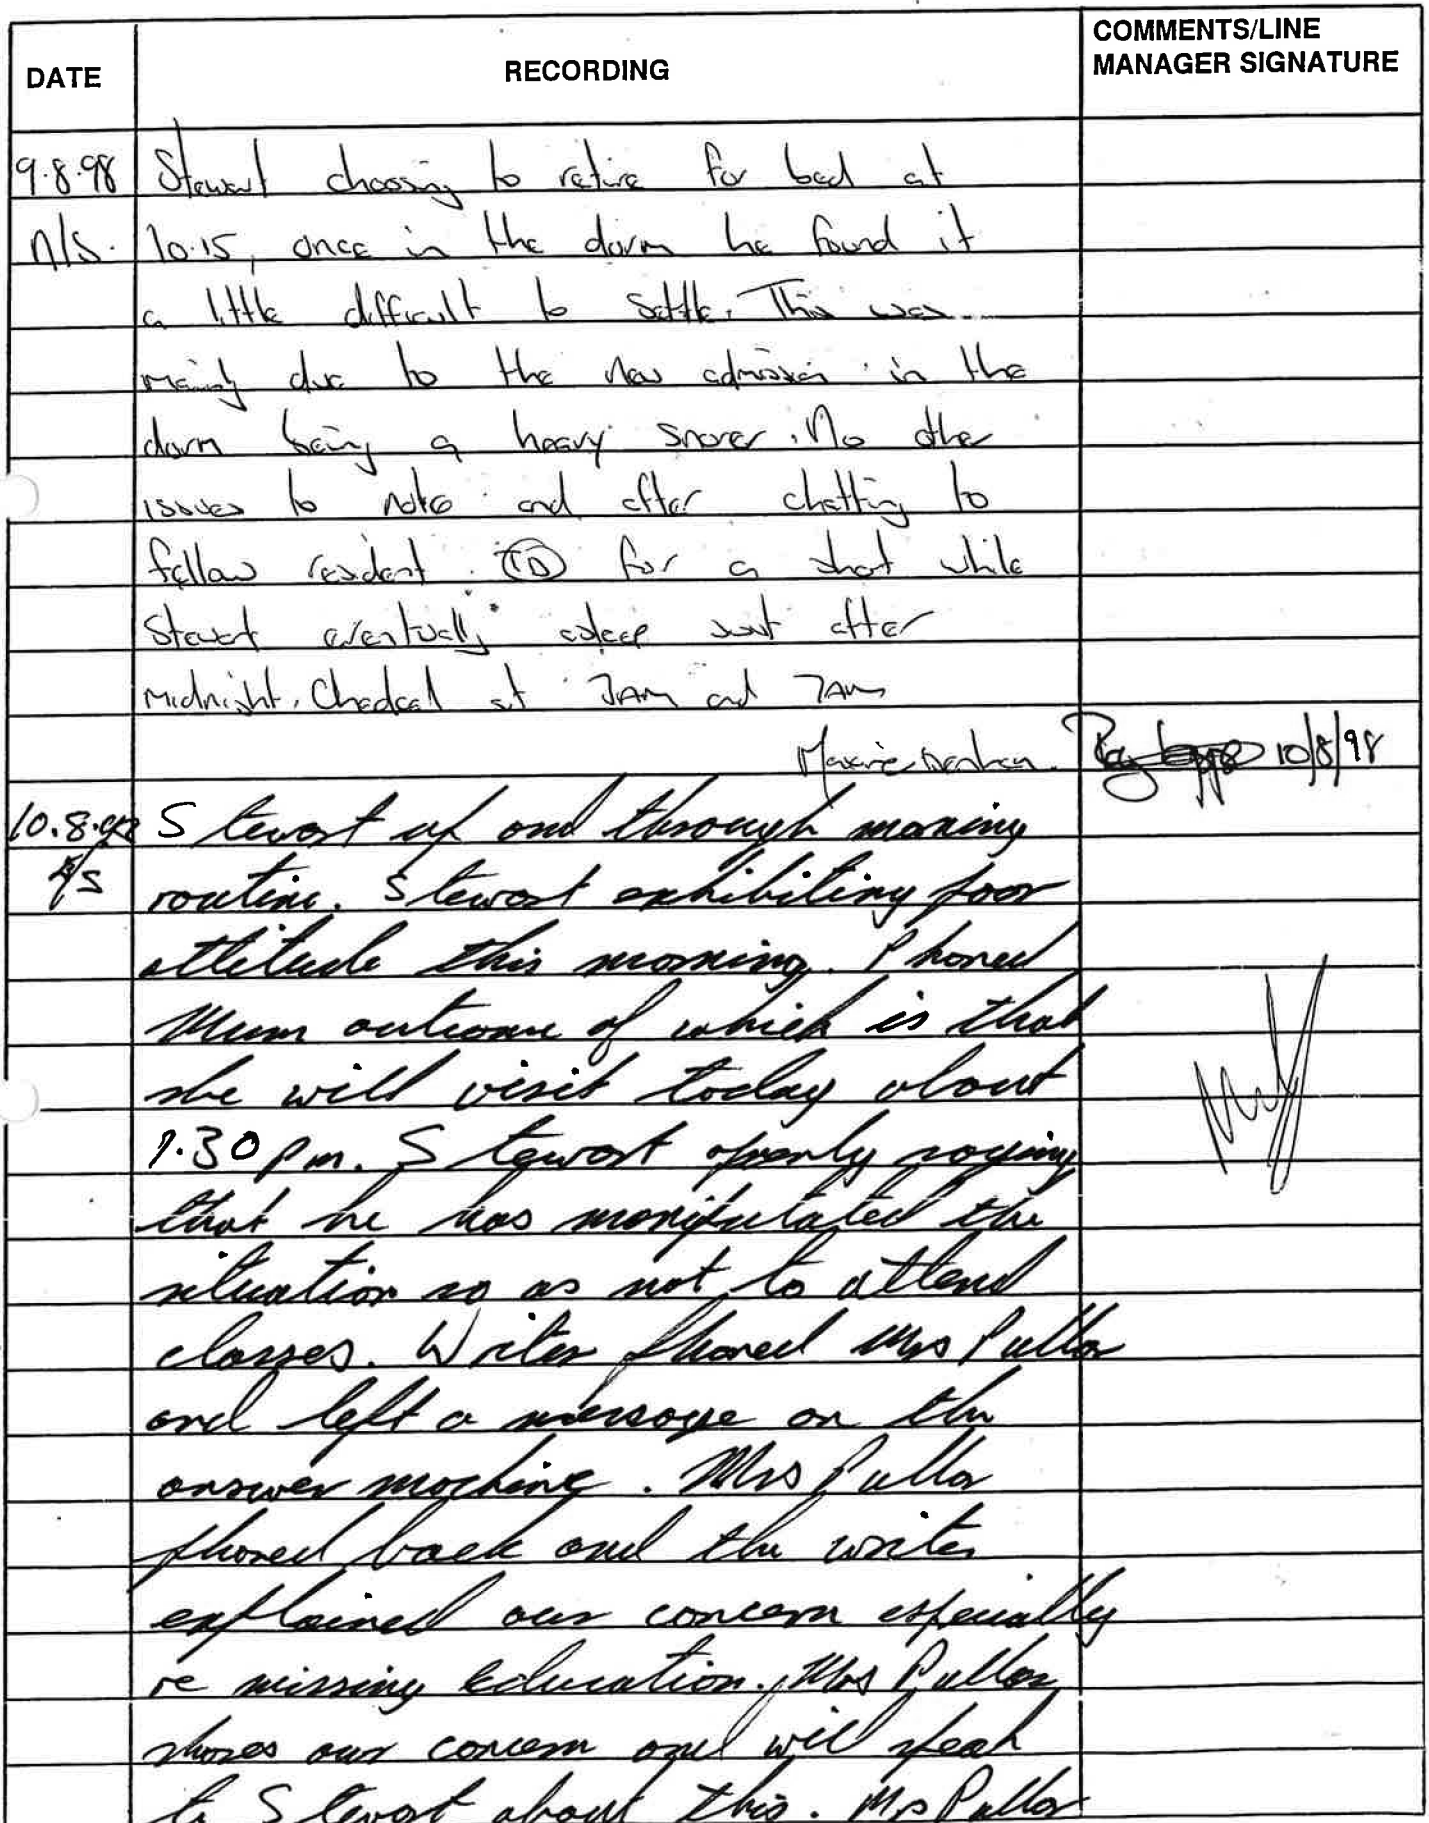 DATE RECORDING COMMENTS/LINE MANAGER SIGNATURE
9.8.98 Stewart choosing to retire for bed at
N/S. 10.15, once in the dorm he found it
a little difficult to settle. This was
mainly due to the new admission in the
dorm being a heavy snorer. No other
issues to note and after chatting to
fellow resident TD for a short while
Stewart eventually asleep just after
midnight. Checked at 3AM and 7AM
10/8/98
10.8.98 Stewart up and through morning
routine. Stewart exhibiting poor
attitude this morning. Phoned
Mum outcome of which is that
she will visit today about
1.30 pm. Stewart openly saying
that he has manipulated the
situation so as not to attend
classes. Writer phoned Mrs Pullar
and left a message on the
answer machine. Mrs Pullar
phoned back and the writer
explained our concern especially
re missing education. Mrs Pullar
shares our concern and will speak
to Stewart about this. Mrs Pullar